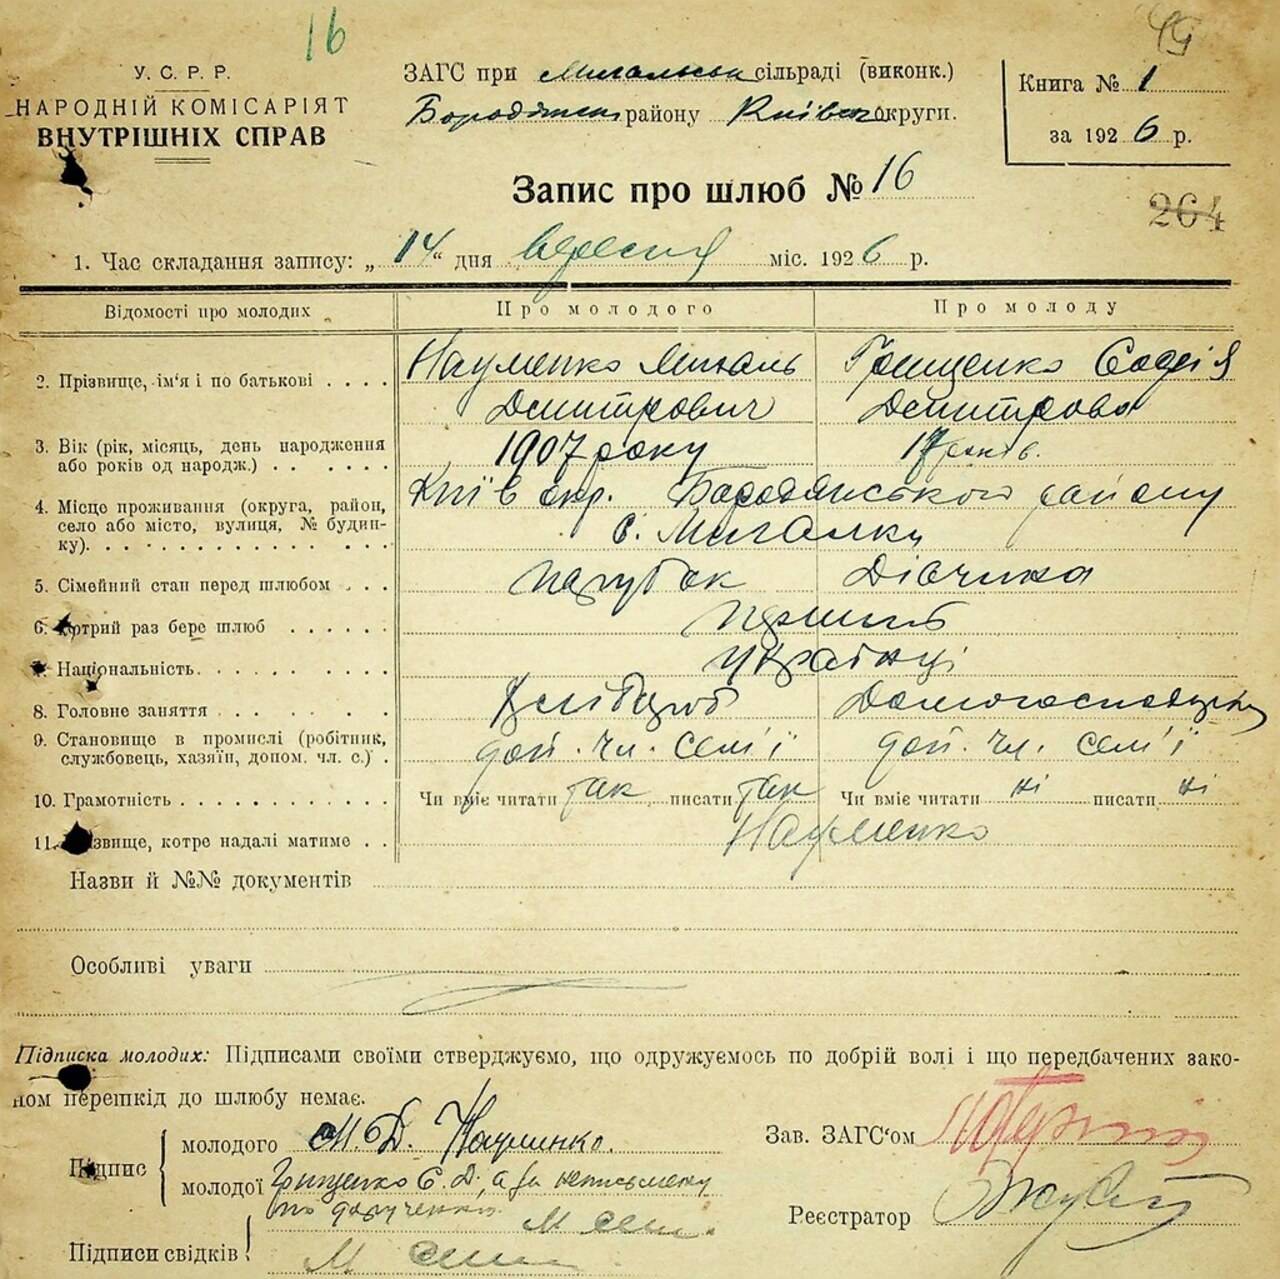 16
49
У. С. Р. Р.
НАРОДНІЙ КОМІСАРІЯТ
ВНУТРІШНІХ СПРАВ
ЗАГС при Мигальськ сільраді (виконк.)
Бородянськ району Київськ округи.
Книга № 1
за 1926 р.
Запис про шлюб № 16
264
1. Час складання запису: „14“ дня вересня міс. 1926 р.
Відомості про молодих Про молодого Про молоду
2. Прізвище, ім'я і по батькові . . . . Науменко Михаль Грищенко Содія
Дмитрович Дмитрова
3. Вік (рік, місяць, день народження 1907 року 17 років.
або років од народж.) . . . . . .
4. Місце проживання (округа, район, Київ окр. Бородянського району
село або місто, вулиця, № будин- с. Мигалки
ку). . . . . . . . . . . . . .
5. Сімейний стан перед шлюбом . . . парубок Дівчина
6. Котрий раз бере шлюб . . . . . . перший
7. Національність. . . . . . . . . . українці
8. Головне заняття . . . . . . . Хлібороб
9. Становище в промислі (робітник, доп. чл. сем'ї доп. чл. сем'ї
службовець, хазяїн, допом. чл. с.) .
10. Грамотність . . . . . . . . . . . Чи вміє читати так писати так Чи вміє читати ні писати ні
11. Прізвище, котре надалі матиме . . Науменко
Назви й №№ документів
Особливі уваги
Підписка молодих: Підписами своїми стверджуємо, що одружуємось по добрій волі і що передбачених зако-
ном перешкід до шлюбу немає.
Підпис
молодого М. Д. Науминко.
молодої Грищенко С. Д., а за неписьмену
по дорученню
Підписи свідків
Зав. ЗАГС'ом
Реєстратор